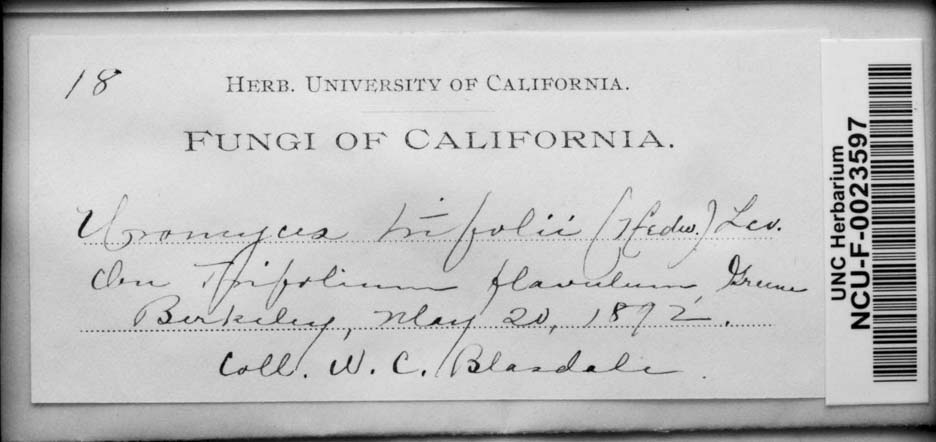 18
HERB. UNIVERSITY OF CALIFORNIA.
FUNGI OF CALIFORNIA.
Uromyces trifolii (Hedw.) Lev.
On Trifolium flavulum, Greene
Berkeley, May 20, 1892.
Coll. W. C. Blasdale.
UNC Herbarium
NCU-F-0023597